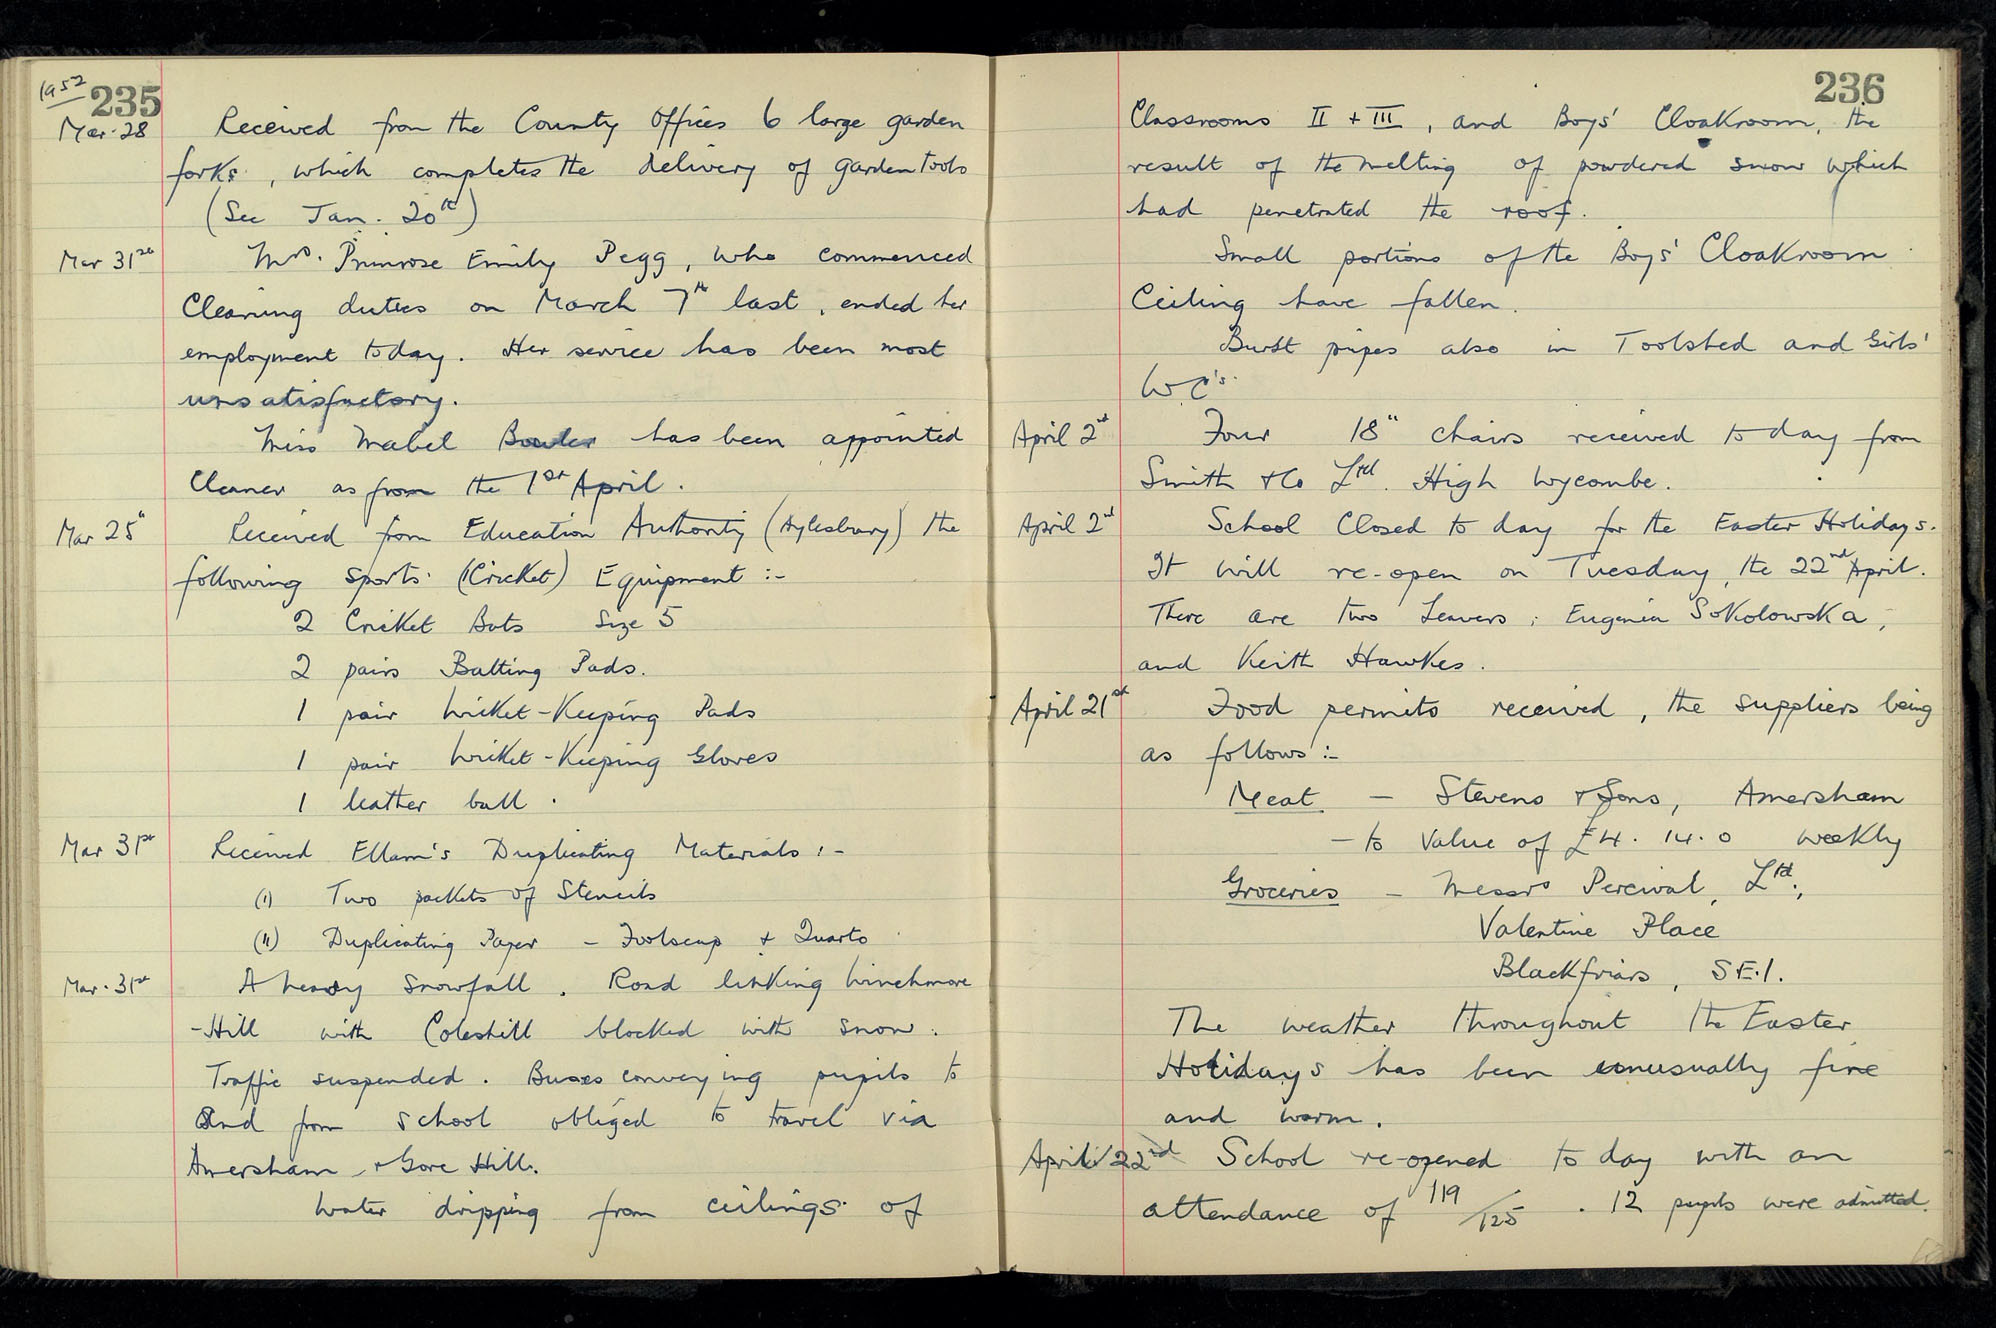 1952
235
Mar. 28 Received from the County Offices 6 large garden
forks, which completes the delivery of garden tools
(See Jan. 20th)
Mar 31st Mrs. Primrose Emily Pegg, who commenced
Cleaning duties on March 7th last, ended her
employment today. Her service has been most
unsatisfactory.
Miss Mabel has been appointed
Cleaner as from the 1st April.
Mar 25th Received from Education Authority (Aylesbury) the
following Sports (Cricket) Equipment :-
2 Cricket Bats Size 5
2 pairs Batting Pads.
1 pair Wicket-Keeping Pads
1 pair Wicket-Keeping Gloves
1 leather ball.
Mar 31st Received Ellam's Duplicating Materials :-
(i) Two packets of Stencils
(ii) Duplicating Paper - Foolscap + Quarto
Mar. 31st A heavy snowfall. Road linking Winchmore
-Hill with Coleshill blocked with snow.
Traffic suspended. Buses conveying pupils to
and from school obliged to travel via
Amersham + Gore Hill.
Water dripping from ceilings of
236
Classrooms II + III, and Boys' Cloakroom, the
result of the melting of powdered snow which
had penetrated the roof.
Small portions of the Boys' Cloakroom
Ceiling have fallen.
Burst pipes also in Toolshed and Girls'
WC's.
April 2nd Four 18" chairs received to day from
Smith & Co Ltd. High Wycombe.
April 2nd School Closed to day for the Easter Holidays.
It will re-open on Tuesday, the 22nd April.
There are two Leavers; Eugenia Sokolowska,
and Keith Hawkes.
April 21st Food permits received, the suppliers being
as follows :-
Meat - Stevens & Sons, Amersham
- to Value of £4. 14. 0 weekly
Groceries - Messrs Percival, Ltd.,
Valentine Place
Blackfriars, S.E.1.
The weather throughout the Easter
Holidays has been unusually fine
and warm.
April 22nd School re-opened to day with an
attendance of 119/125. 12 pupils were admitted.